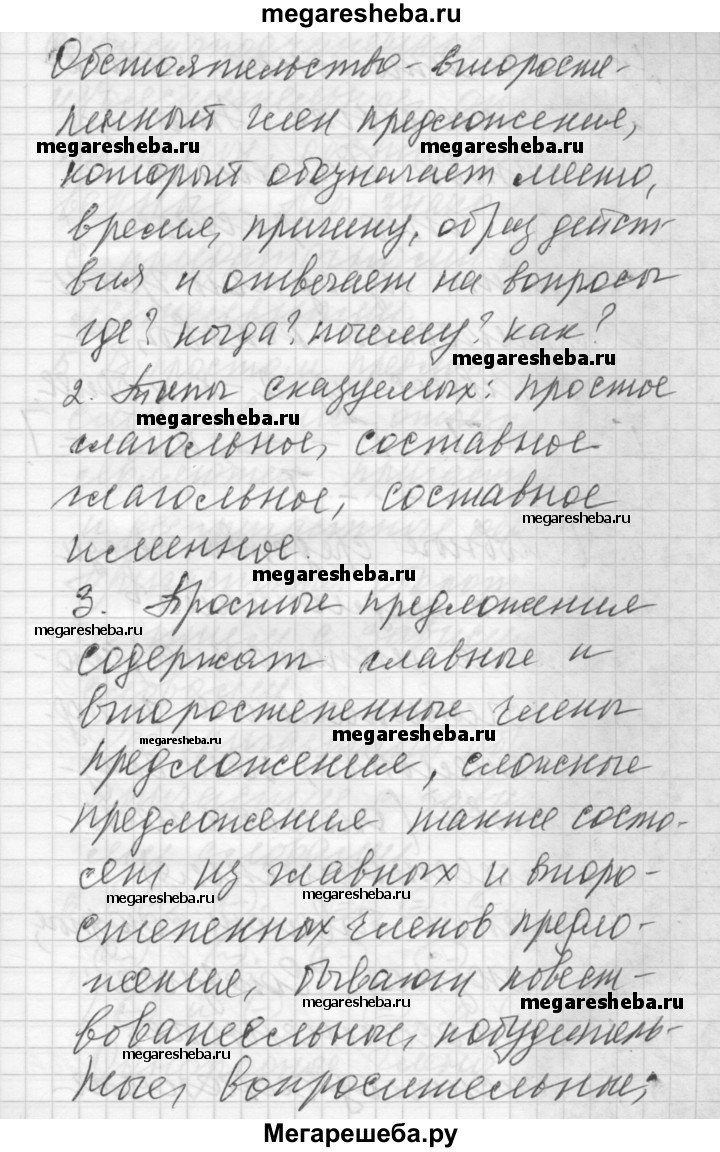 megaresheba.ru
Обстоятельство - второсте-
пенный член предложения,
megaresheba.ru megaresheba.ru
который обозначает место,
время, причину, образ дейст-
вия и отвечает на вопросы
где? когда? почему? как?
megaresheba.ru
2. Типы сказуемых: простое
megaresheba.ru
глагольное, составное
глагольное, составное
megaresheba.ru
именное.
megaresheba.ru
3. Простые предложения
megaresheba.ru
содержат главные и
второстепенные члены
megaresheba.ru megaresheba.ru
предложения, сложные
предложения также состо-
сят из главных и второ-
megaresheba.ru megaresheba.ru
степенных членов предло-
жения, бывают повест-
megaresheba.ru megaresheba.ru
вовательные, побудитель-
megaresheba.ru
ные, вопросительные;
Мегарешеба.ру